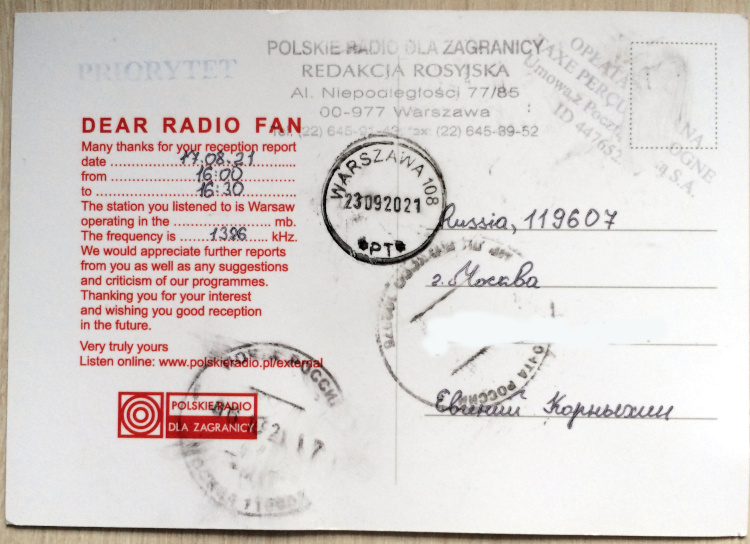 PRIORYTET
POLSKIE RADIO DLA ZAGRANICY
REDAKCJA ROSYJSKA
Al. Niepodległości 77/85
00-977 Warszawa
(22) 645-39-52
OPŁATA
TAXE PERÇUE
Umowa z
S.A.
DEAR RADIO FAN
Many thanks for your reception report
date 17.08.21
from 16:00
to 16:30
The station you listened to is Warsaw
operating in the mb.
The frequency is 1386 kHz.
We would appreciate further reports
from you as well as any suggestions
and criticism of our programmes.
Thanking you for your interest
and wishing you good reception
in the future.
Very truly yours
Listen online: www.polskieradio.pl/external
POLSKIE RADIO
DLA ZAGRANICY
WARSZAWA 108
23092021
*PT*
Russia, 119607
г. Москва
Евгений Корныхин
ПОЧТА РОССИИ